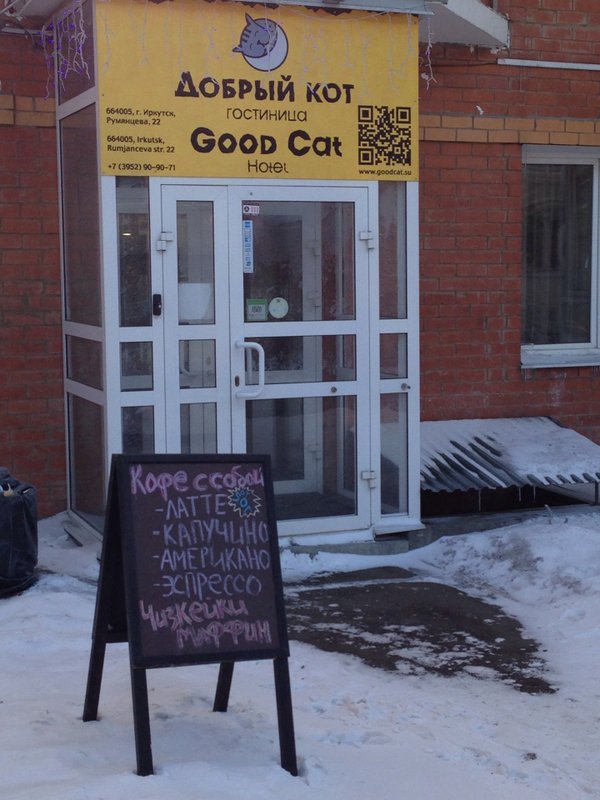 Добрый кот
гостиница
664005, г. Иркутск,
Румянцева, 22
Good Cat
664005, Irkutsk,
Rumjanceva str. 22
Hotel
+7 (3952) 90-90-71
www.goodcat.su
Кофе с собой
-ЛАТТЕ
-КАПУЧИНО
-АМЕРИКАНО
-ЭСПРЕССО
ЧИЗКЕЙКИ
МАФФИН